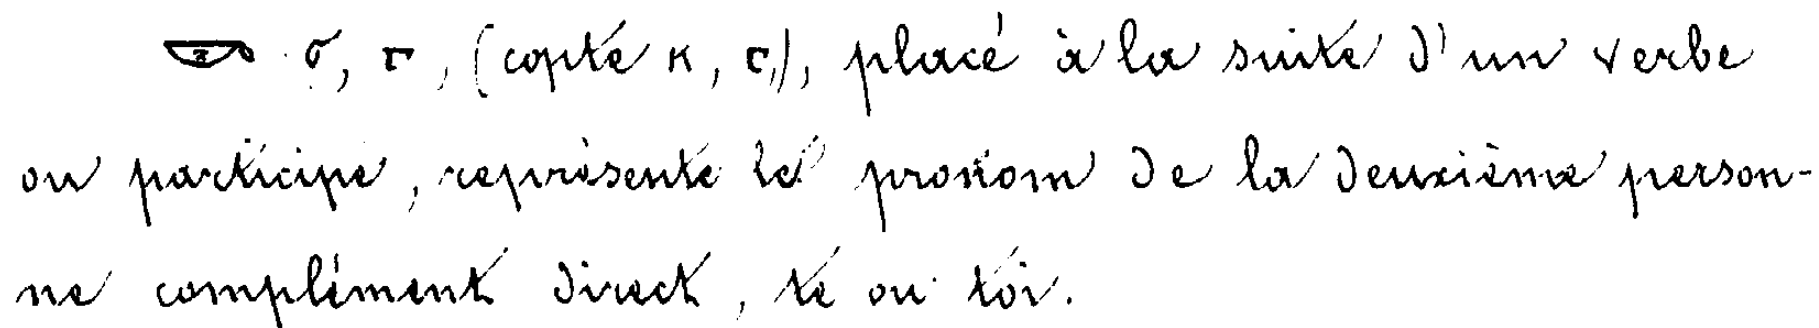 𓎡 σ, г, (copte κ, г,), placé à la suite d'un verbe
ou participe, représente le pronom de la deuxième person-
ne complément direct, te ou toi.